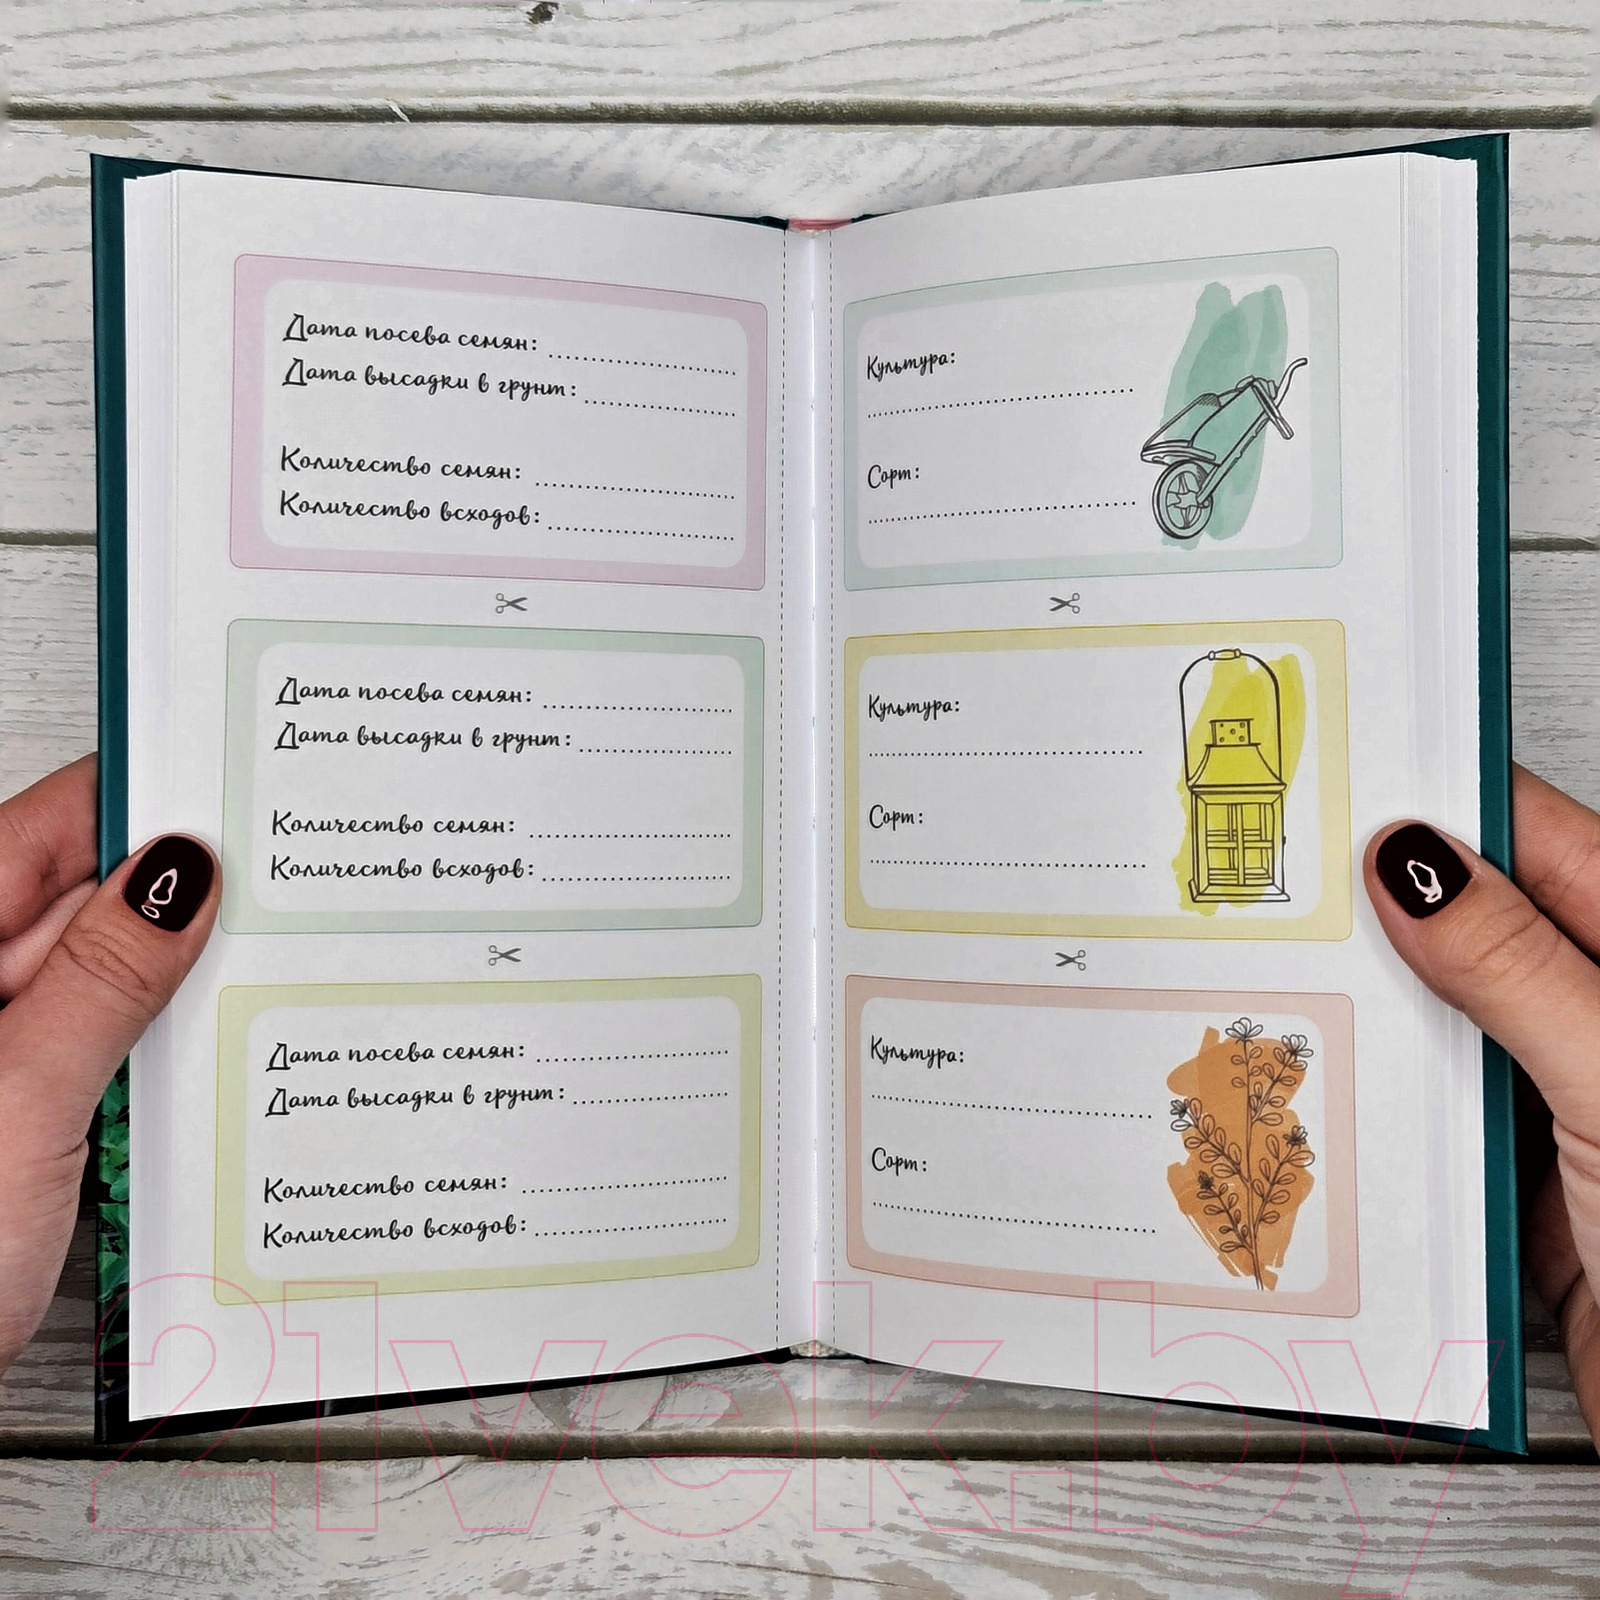 Дата посева семян:
Дата высадки в грунт:
Количество семян:
Количество всходов:
Дата посева семян:
Дата высадки в грунт:
Количество семян:
Количество всходов:
Дата посева семян:
Дата высадки в грунт:
Количество семян:
Количество всходов:
Культура:
Сорт:
Культура:
Сорт:
Культура:
Сорт:
21vek.by